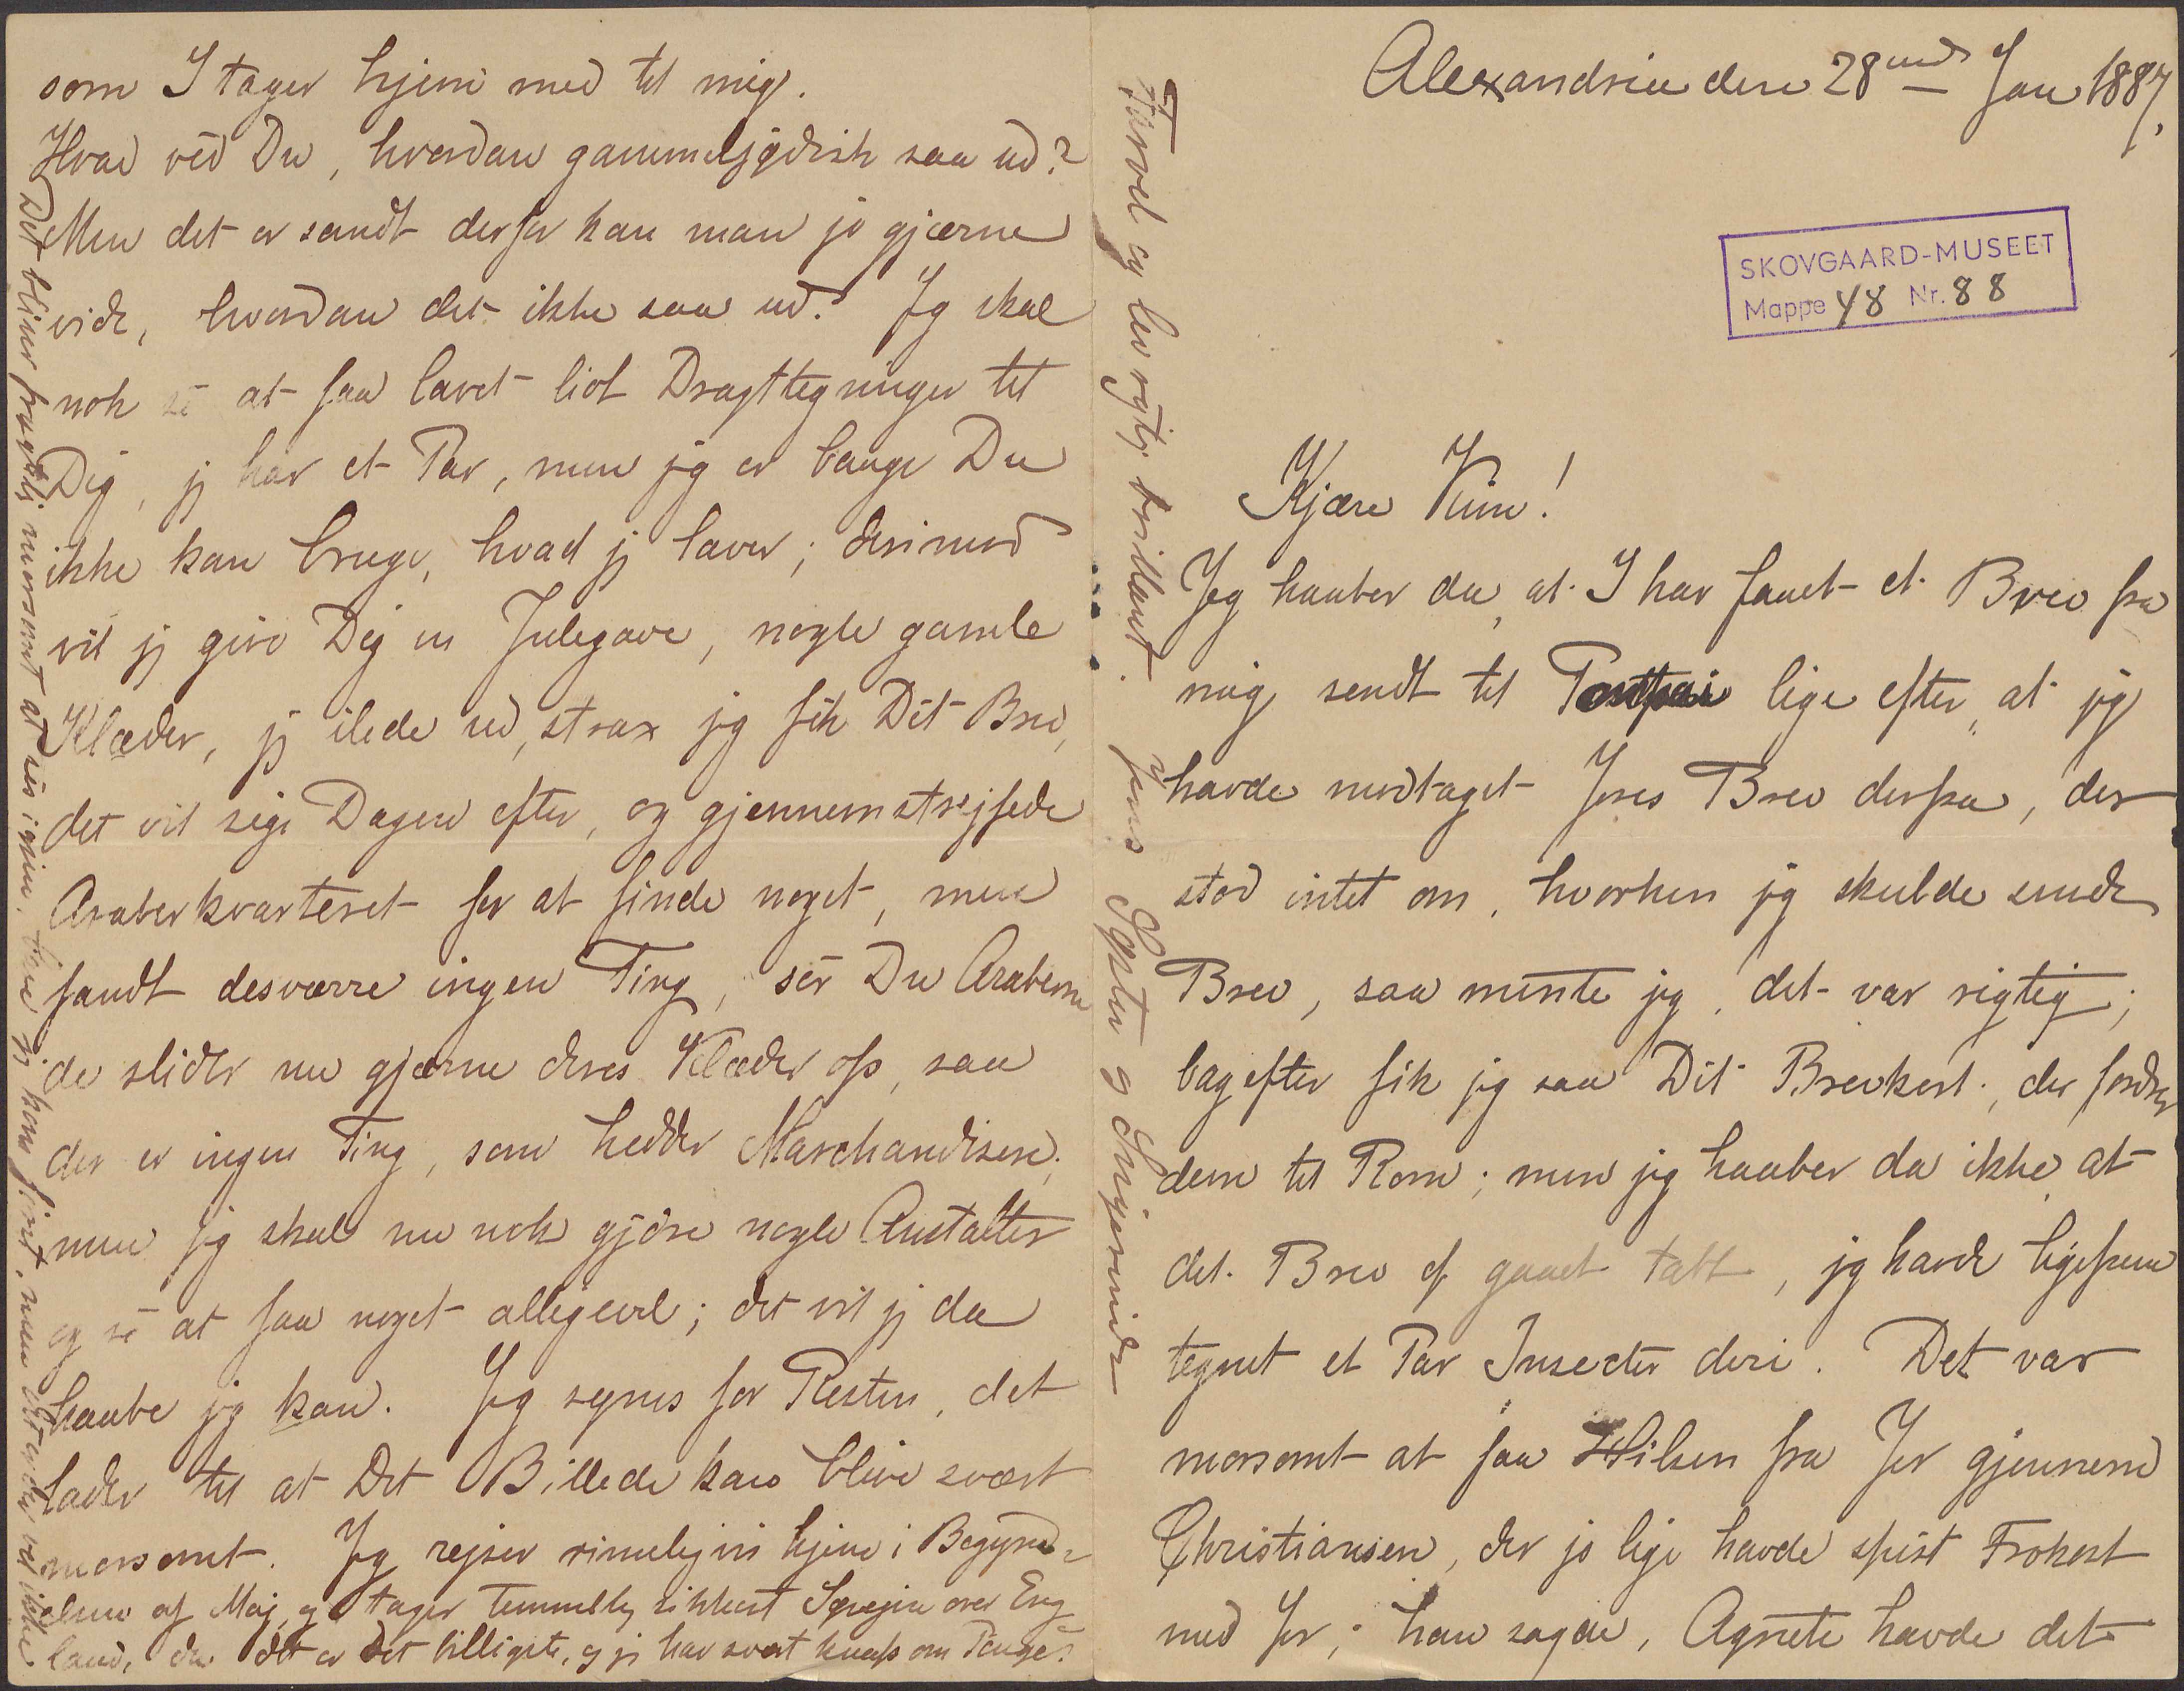 Alexandria den 28nd Jan 1887.
SKOVGAARD-MUSEET
Mappe 48 Nr. 88
Kjære Kim!
Jeg haaber da, at I har faaet et Brev fra
mig sendt til lige efter, at jeg
havde modtaget Jeres Brev derfra, der
stod intet om, hvorhen jeg skulde sende
Brev, saa mente jeg, det var rigtig;
bagefter fik jeg saa Dit Brevkort, der fordrer
dem til Rom; men jeg haaber da ikke, at
det Brev er gaaet tabt, jeg havde ligefrem
tegnet et Par Insecter deri. Det var
morsomt at faa Hilsen fra Jer gjennem
Christiansen, der jo lige havde spist Frokost
med Jer; han sagde, Agnete havde det
som I tager hjem med til mig.
Hvad véd Du, hvordan gammeljødisk saa ud?
Men det er sandt derfor kan man jo gjærne
vide, hvordan det ikke saa ud. Jeg skal
nok sé at faa lavet lidt Dragttegninger til
Dig, jeg har et Par, men jeg er bange Du
ikke kan bruge, hvad jeg laver; derimod
vil jeg give Dig en Julegave, nogle gamle
Klæder, jeg ilede ud, strax jeg fik Dit Brev,
det vil sige Dagen efter, og gjennemstrejfede
Araberkvarteret for at finde noget, men
fandt desværre ingen Ting, sér Du Araberne
de slider nu gjærne deres Klæder op, saa
der er ingen Ting, som hedder Marchandisere;
men jeg skal nu nok gjöre nogle Anstalter
og sé at faa noget alligevel; det vil jeg da
haabe jeg kan. Jeg synes for Resten, det
lader til at Dit Billede kan blive svært
morsomt. Jeg rejser rimeligvis hjem i Begynd-
elsen af Maj, og tager temmelig sikkert Søvejen over Eng
land, da det er det billigste, og jeg har svært knapt om Penge.
Det bliver frygtelig morsomt at sés igjen, bare jeg kom först, men det véd jeg ikke
Farvel og lev rigtig brillant. Jeres Syster og Svigerinde